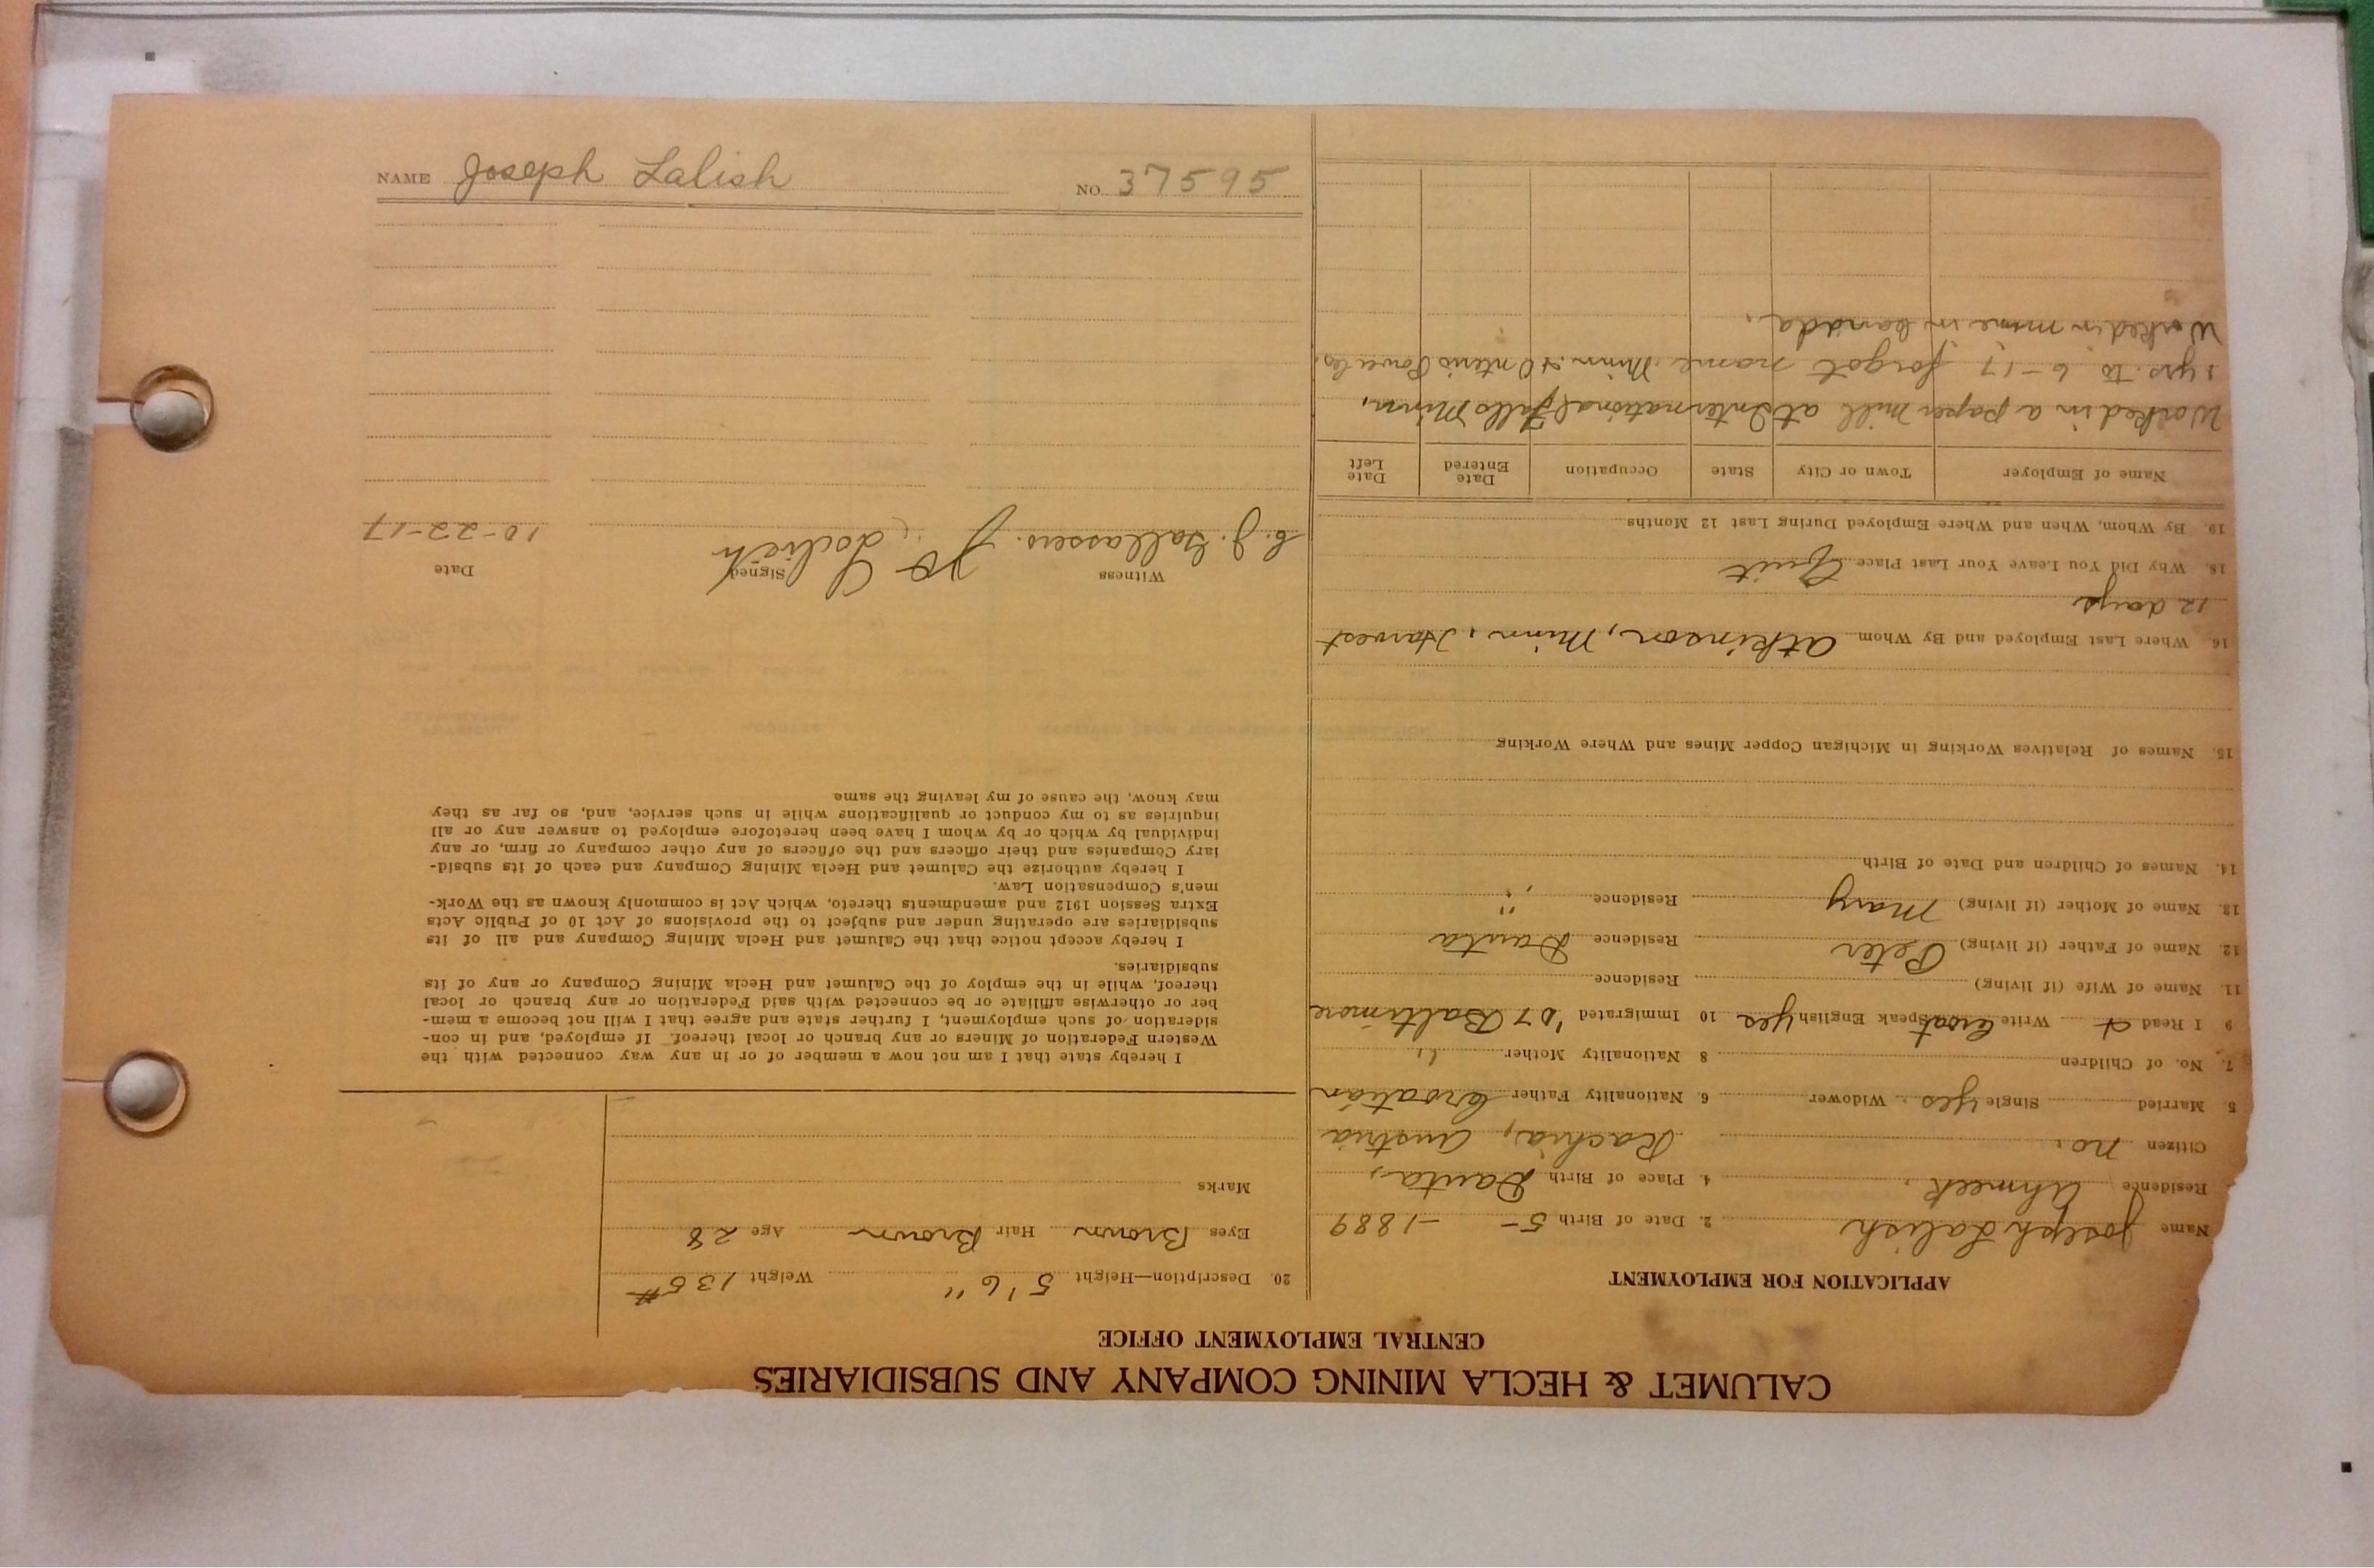 CALUMET & HECLA MINING COMPANY AND SUBSIDIARIES
CENTRAL EMPLOYMENT OFFICE
APPLICATION FOR EMPLOYMENT
Name Joseph Lalish 2. Date of Birth 5- -1889
Residence Ahmeek. 4. Place of Birth Dauta,
Citizen no. Rachia, Austria
5 Married Single yes. Widower 6. Nationality Father Croatian
7. No. of Children 8 Nationality Mother "
9 I Read & Write Croat Speak English yes 10 Immigrated '07 Baltimore
11. Name of Wife (if living) Residence
12. Name of Father (if living) Peter Residence Dauta
13. Name of Mother (if living) Mary Residence "
14. Names of Children and Date of Birth
15. Names of Relatives Working in Michigan Copper Mines and Where Working
16. Where Last Employed and By Whom Atkinson, Minn, Harvest
12 days
18. Why Did You Leave Your Last Place Quit
19. By Whom, When and Where Employed During Last 12 Months
Name of Employer Town or City State Occupation Date Entered Date Left
Worked in a paper mill at International Falls Minn.
yrs. to 6-17 forgot name Minn. & Ontario Power Co.
Worked in mine in Canada.
20. Description—Height 5'6" Weight 135#
Eyes Brown Hair Brown Age 28
Marks
I hereby state that I am not now a member of or in any way connected with the
Western Federation of Miners or any branch or local thereof. If employed, and in con-
sideration of such employment, I further state and agree that I will not become a mem-
ber or otherwise affiliate or be connected with said Federation or any branch or local
thereof, while in the employ of the Calumet and Hecla Mining Company or any of its
subsidiaries.
I hereby accept notice that the Calumet and Hecla Mining Company and all of its
subsidiaries are operating under and subject to the provisions of Act 10 of Public Acts
Extra Session 1912 and amendments thereto, which Act is commonly known as the Work-
men's Compensation Law.
I hereby authorize the Calumet and Hecla Mining Company and each of its subsid-
iary Companies and their officers and the officers of any other company or firm, or any
individual by which or by whom I have been heretofore employed to answer any or all
inquiries as to my conduct or qualifications while in such service, and, so far as they
may know, the cause of my leaving the same
Witness Signed Date
10-22-17
NAME Joseph Lalish NO. 37595